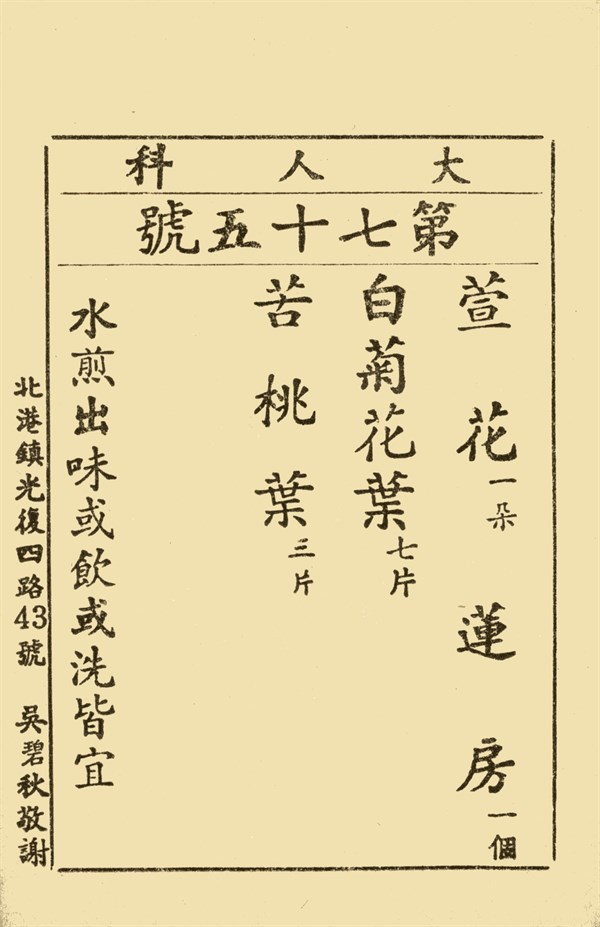 大人科
第七十五號
萱花一朵 蓮房一個
白菊花葉七片
苦桃葉三片
水煎出味或飲或洗皆宜
北港鎮光復四路43號 吳碧秋敬謝